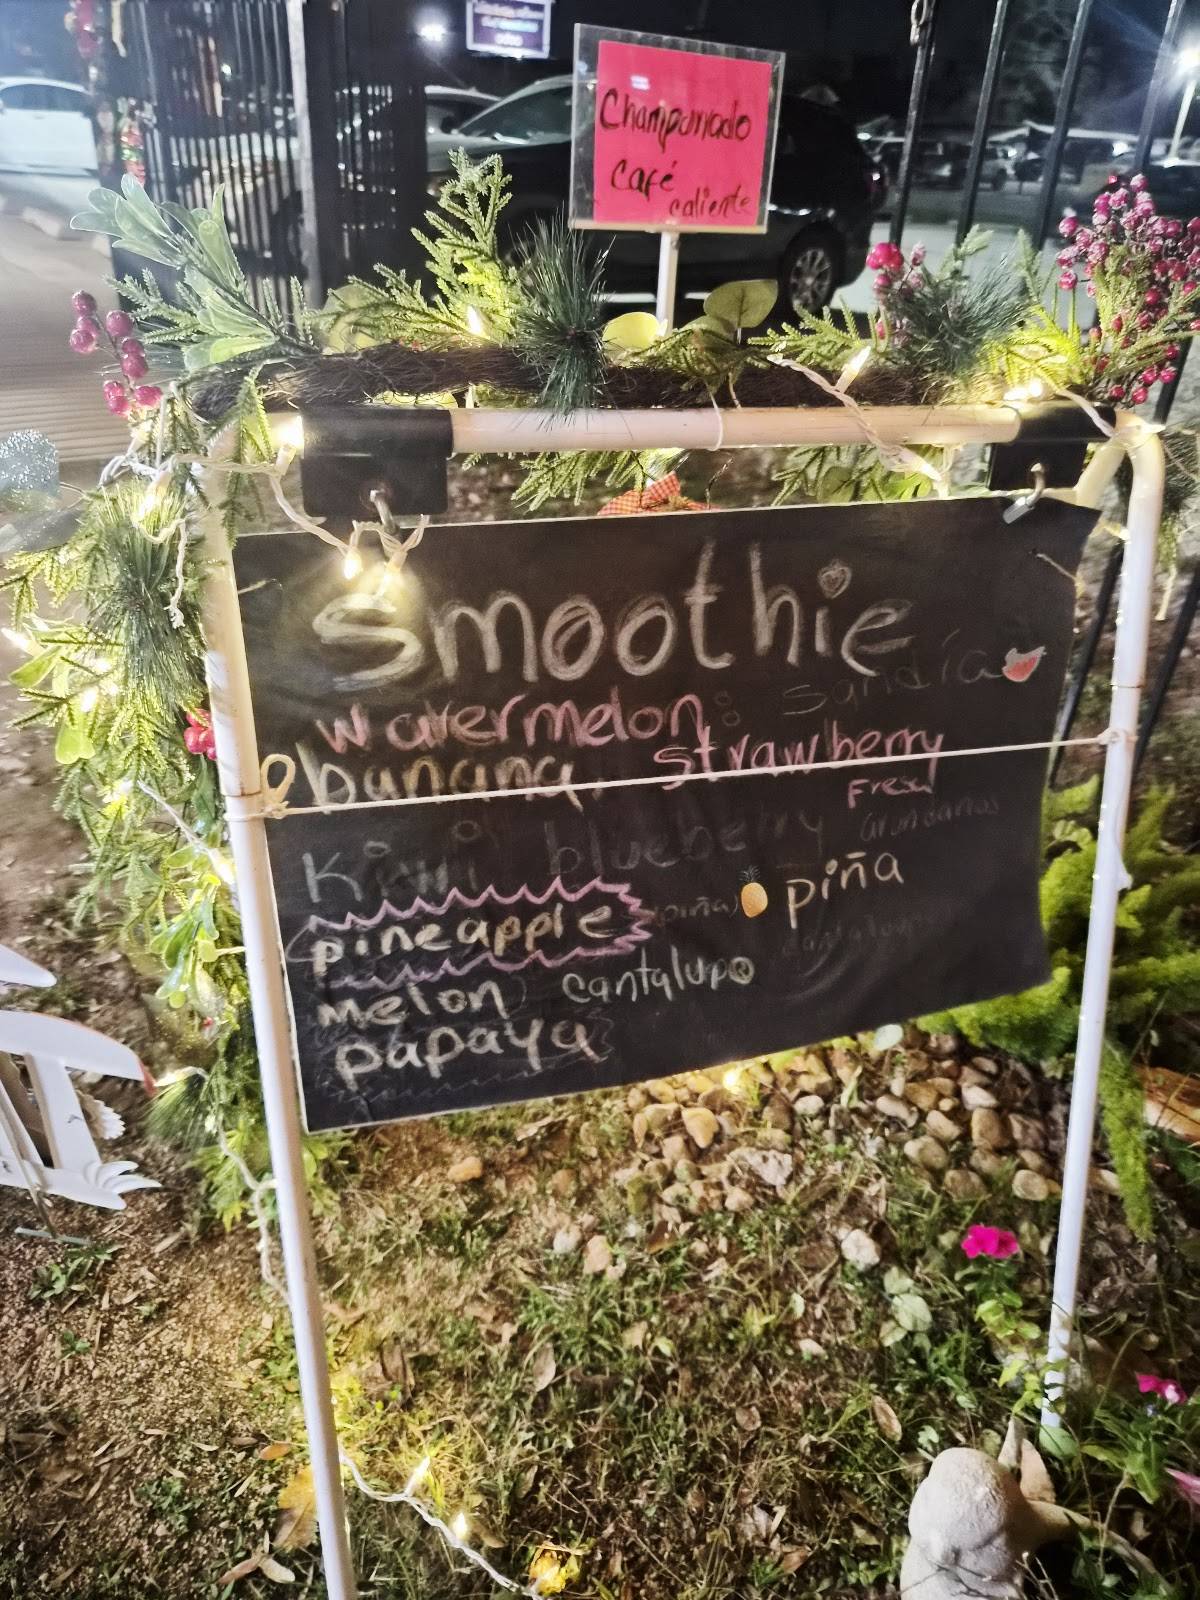 Champurrado
Café
caliente
Smoothie
watermelon: Sandía
banana, strawberry
Fresa
Kiwi blueberry arandanos
pineapple (piña) piña
melon cantalupo
papaya